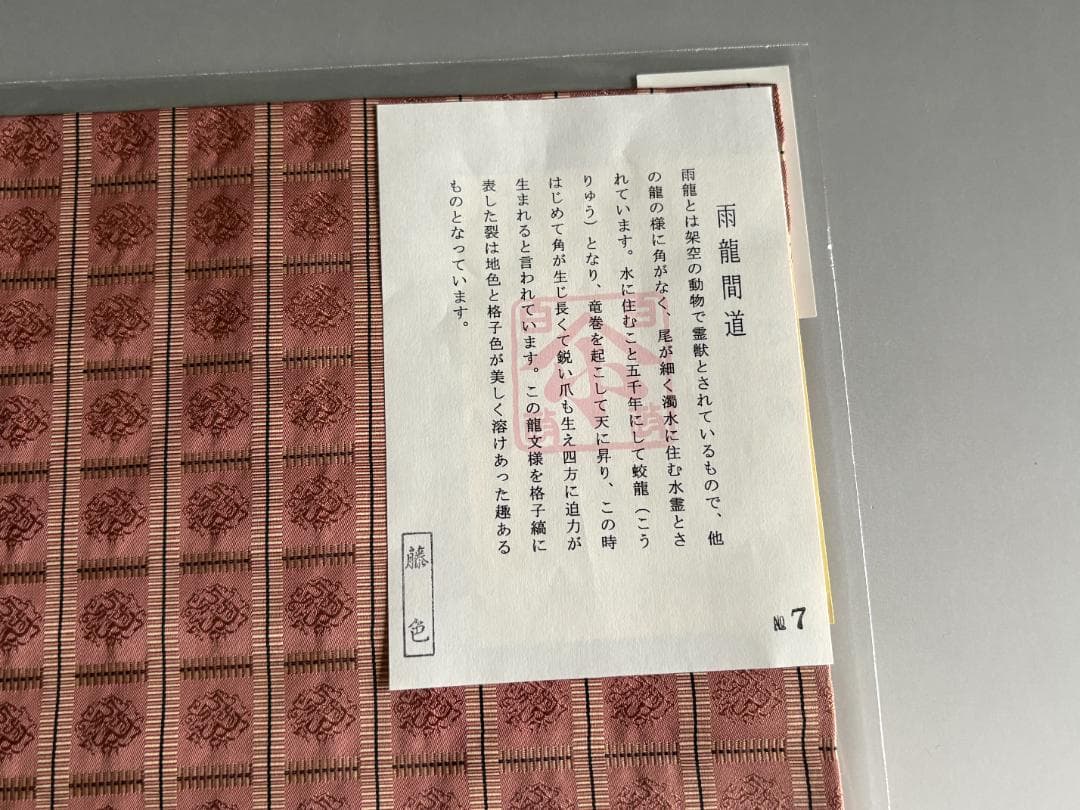 雨龍間道
雨龍とは架空の動物で霊獣とされているもので、他
の龍の様に角がなく、尾が細く濁水に住む水霊とさ
れています。水に住むこと五千年にして蛟龍（こう
りゅう）となり、竜巻を起こして天に昇り、この時
はじめて角が生じ長くて鋭い爪も生え四方に迫力が
生まれると言われています。この龍文様を格子縞に
表した裂は地色と格子色が美しく溶けあった趣ある
ものとなっています。
藤色
№7